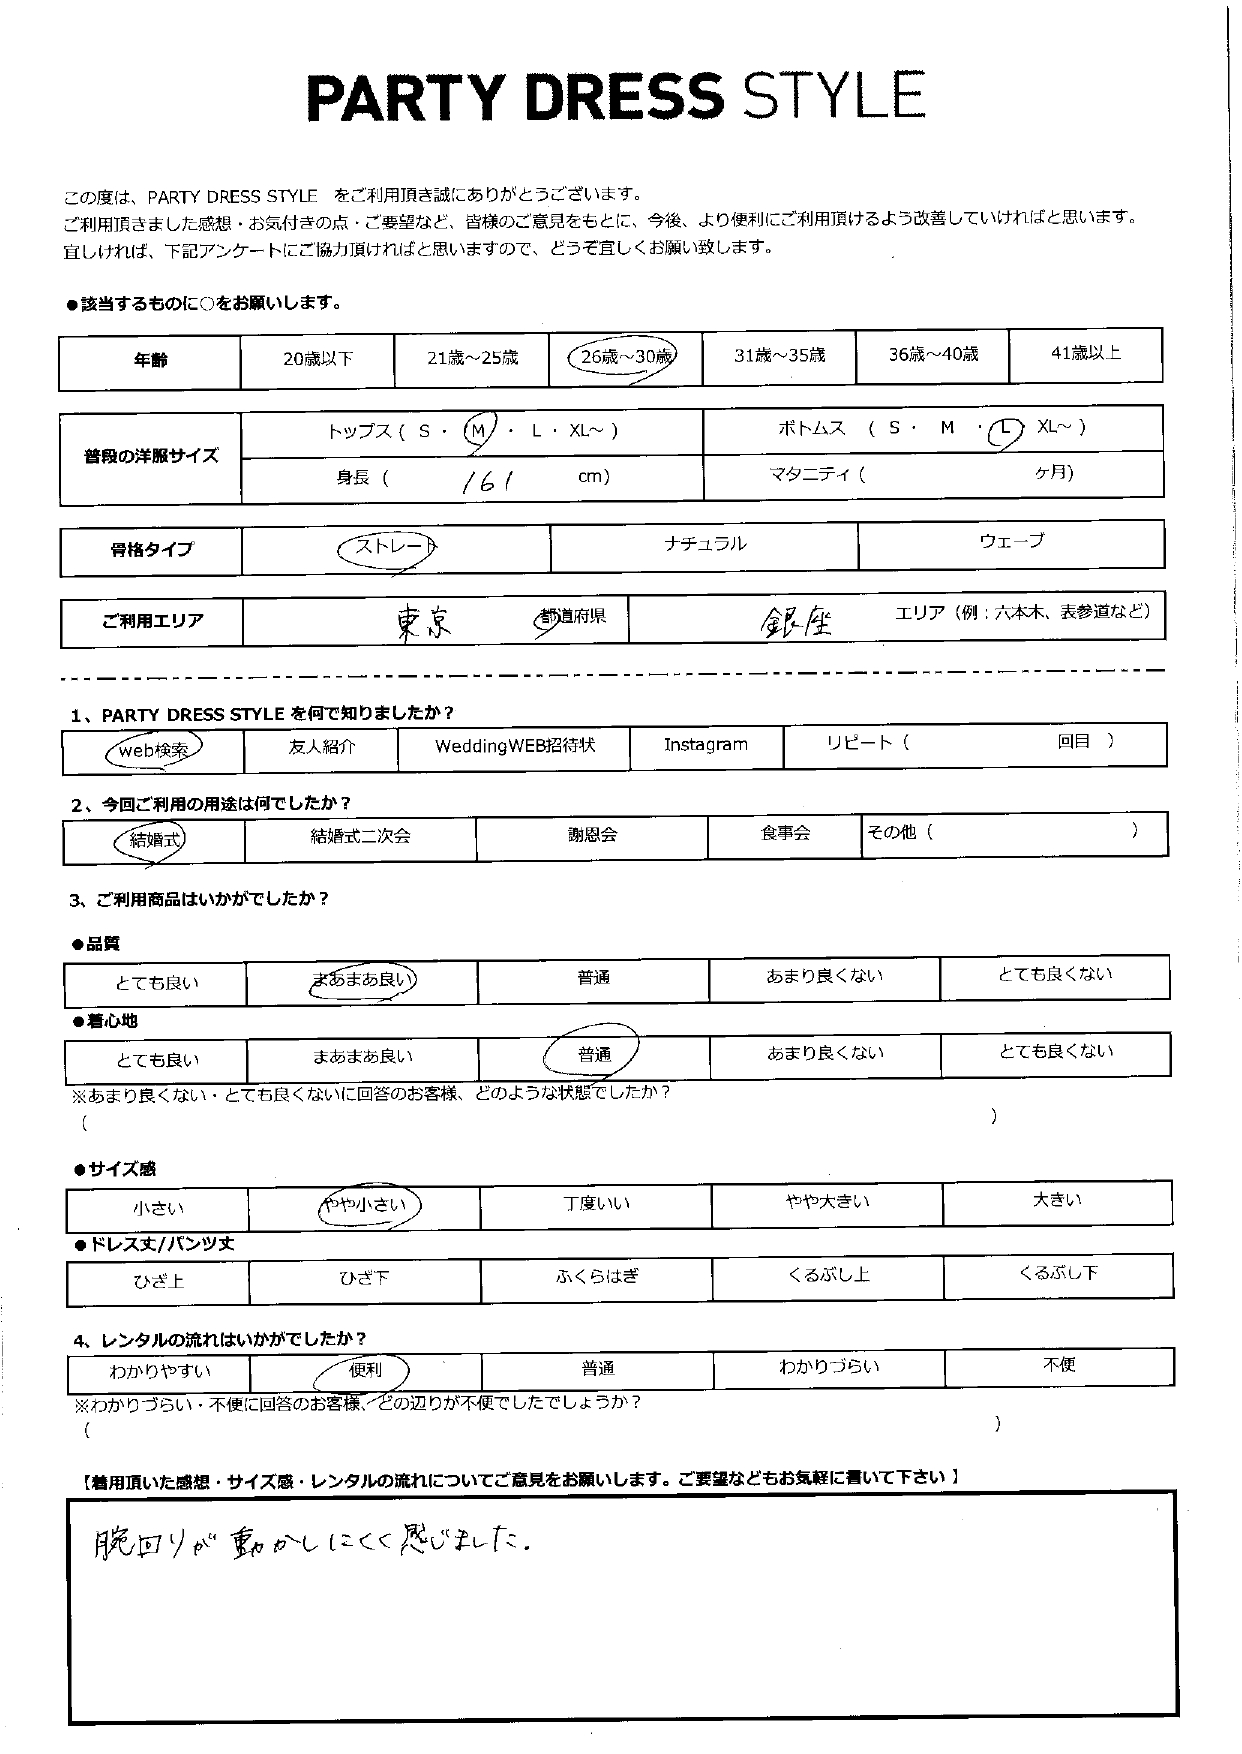 PARTY DRESS STYLE
この度は、PARTY DRESS STYLE をご利用頂き誠にありがとうございます。
ご利用頂きました感想・お気付きの点・ご要望など、皆様のご意見をもとに、今後、より便利にご利用頂けるよう改善していければと思います。
宜しければ、下記アンケートにご協力頂ければと思いますので、どうぞ宜しくお願い致します。
●該当するものに○をお願いします。
年齢 20歳以下 21歳～25歳 26歳～30歳 31歳～35歳 36歳～40歳 41歳以上
普段の洋服サイズ
トップス ( S ・ M ・ L ・ XL～ ) ボトムス ( S ・ M ・ L XL～ )
身長 ( 161 cm) マタニティ ( ヶ月)
骨格タイプ ストレート ナチュラル ウェーブ
ご利用エリア 東京 都道府県 銀座 エリア（例：六本木、表参道など）
1、PARTY DRESS STYLE を何で知りましたか？
web検索 友人紹介 WeddingWEB招待状 Instagram リピート ( 回目 )
2、今回ご利用の用途は何でしたか？
結婚式 結婚式二次会 謝恩会 食事会 その他 ( )
3、ご利用商品はいかがでしたか？
●品質
とても良い まあまあ良い 普通 あまり良くない とても良くない
●着心地
とても良い まあまあ良い 普通 あまり良くない とても良くない
※あまり良くない・とても良くないに回答のお客様、どのような状態でしたか？
( )
●サイズ感
小さい やや小さい 丁度いい やや大きい 大きい
●ドレス丈/パンツ丈
ひざ上 ひざ下 ふくらはぎ くるぶし上 くるぶし下
4、レンタルの流れはいかがでしたか？
わかりやすい 便利 普通 わかりづらい 不便
※わかりづらい・不便に回答のお客様、どの辺りが不便でしたでしょうか？
( )
【着用頂いた感想・サイズ感・レンタルの流れについてご意見をお願いします。ご要望などもお気軽に書いて下さい】
腕回りが動かしにくく感じました.